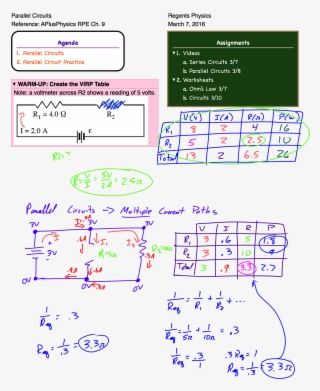 Parallel Circuits
Reference: APlusPhysics RPE Ch. 9
Regents Physics
March 7, 2016
Agenda
1. Parallel Circuits
2. Parallel Circuit Practice
Assignments
1. Videos
a. Series Circuits 3/7
b. Parallel Circuits 3/8
2. Worksheets
a. Ohm's Law 3/7
b. Circuits 3/10
• WARM-UP: Create the VIRP Table
Note: a voltmeter across R2 shows a reading of 5 volts.
R₁ = 4.0 Ω
R₂
I = 2.0 A
ε
V(V) I(A) R(Ω) P(W)
R₁ 8 2 4 16
R₂ 5 2 2.5 10
Total 13 2 6.5 26
R2=?
R = V/I = 5V/2A = 2.5Ω
Parallel Circuits → Multiple Current Paths
3V 3V 3V
I
3V
I₁
R₁=5Ω
I₂
.3A
0V 0V 0V
V I R P
R₁ 3 .6 5 1.8
R₂ 3 .3 10 .9
Total 3 .9 3.3 2.7
1/Req = .3
Req = 1/.3 = 3.3Ω
1/Req = 1/R₁ + 1/R₂ + ...
1/Req = 1/5Ω + 1/10Ω = .3
1/Req = .3/1
.3 Req = 1
Req = 1/.3 = 3.3Ω